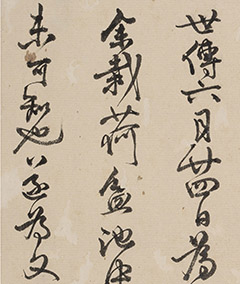 世傳六月廿四日為
余栽荷盆池中
未可知也以遂為文